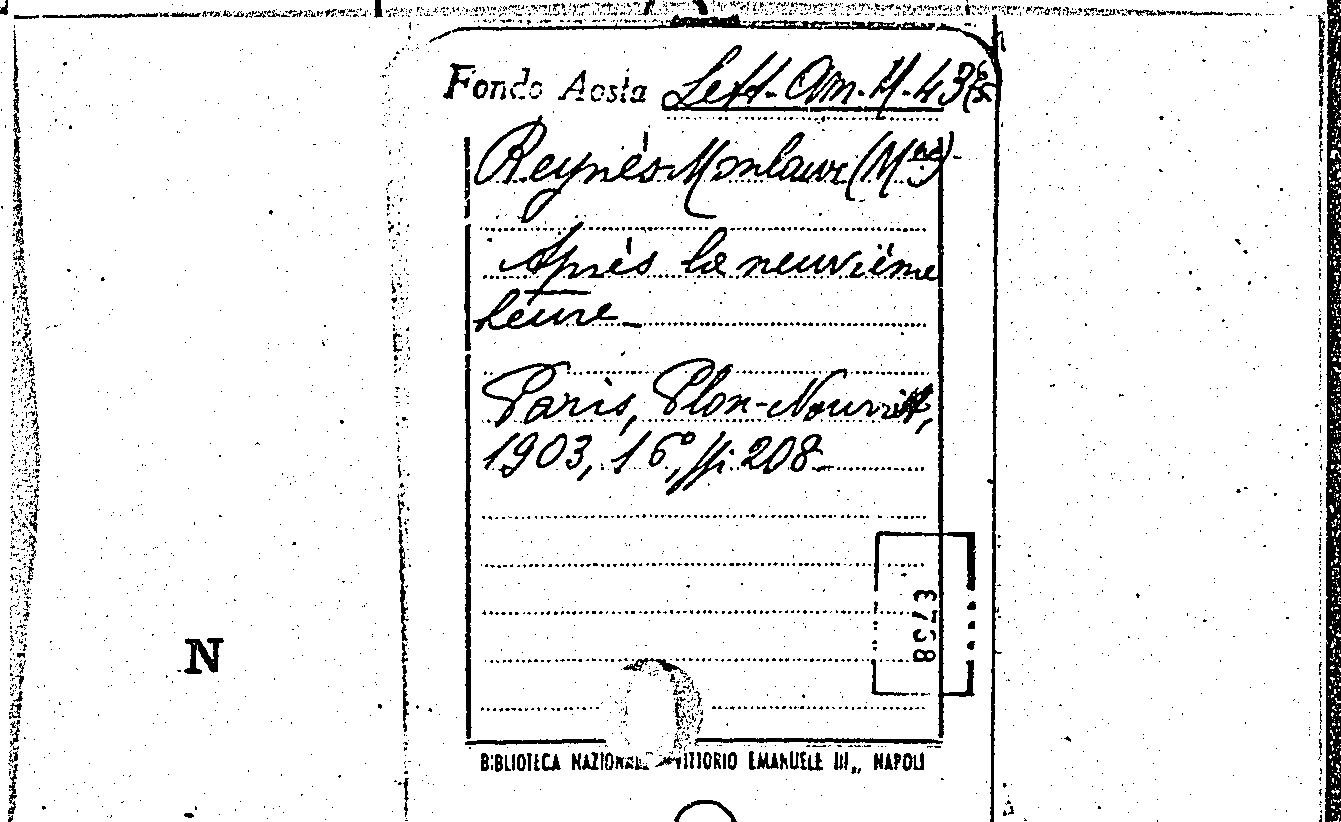 Fondo Aosta Lett. Am. H. 43
Reynès-Monlaur (Mme).
Après la neuvième
heure
Paris, Plon-Nourrit,
1903, 16°, pp. 208
N
BIBLIOTECA NAZIONALE VITTORIO EMANUELE III,, NAPOLI